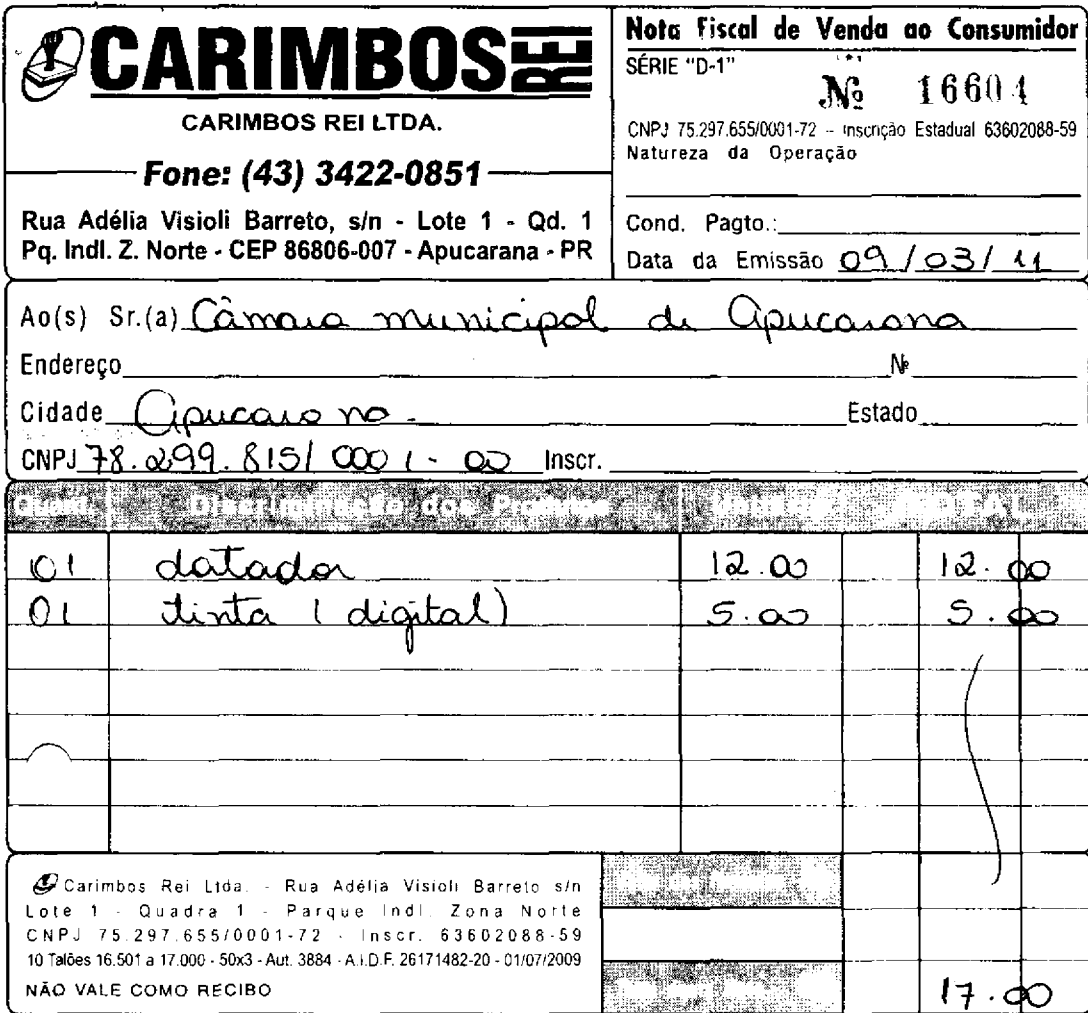 CARIMBOS REI
CARIMBOS REI LTDA.
Fone: (43) 3422-0851
Rua Adélia Visioli Barreto, s/n - Lote 1 - Qd. 1
Pq. Indl. Z. Norte - CEP 86806-007 - Apucarana - PR
Nota Fiscal de Venda ao Consumidor
SÉRIE "D-1"
Nº 16604
CNPJ 75.297.655/0001-72 - Inscrição Estadual 63602088-59
Natureza da Operação
Cond. Pagto.:
Data da Emissão 09/03/11
Ao(s) Sr.(a) Câmara municipal de Apucarana
Endereço Nº
Cidade Apucarana - Estado
CNPJ 78.299.815/0001-00 Inscr.
Quant. Discriminação dos Produtos TOTAL
01 datador 12.00 12.00
01 tinta (digital) 5.00 5.00
Carimbos Rei Ltda. - Rua Adélia Visioli Barreto s/n
Lote 1 - Quadra 1 - Parque Indl. Zona Norte
CNPJ 75.297.655/0001-72 - Inscr. 63602088-59
10 Talões 16.501 a 17.000 - 50x3 - Aut. 3884 - A.I.D.F. 26171482-20 - 01/07/2009
NÃO VALE COMO RECIBO
17.00